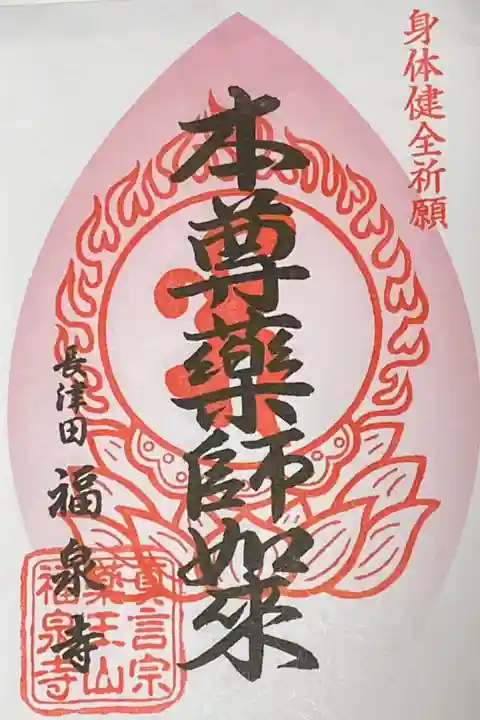 身体健全祈願
本尊藥師如來
長津田
福泉寺
真言宗
藥王山
福泉寺